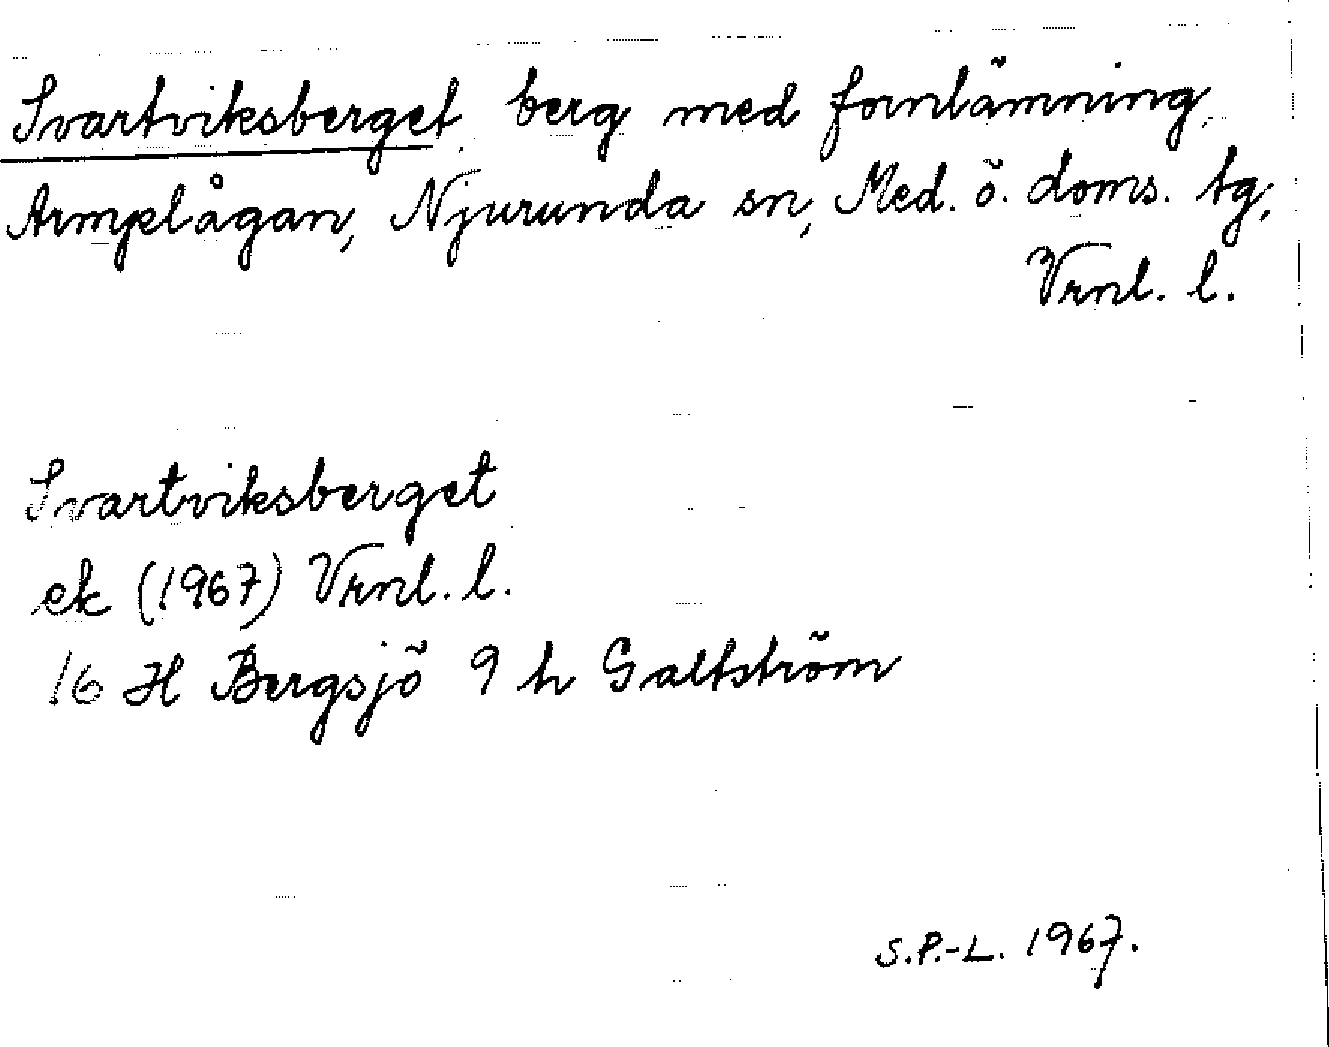 Svartviksberget, berg med fornlämning,
Armyelågan, Njurunda sn, Med. ö. doms. tg,
Vrnl. l.
Svartviksberget
ek (1967) Vrnl. l.
16 H Bergsjö 9 h Galtström
S.P.-L. 1967.